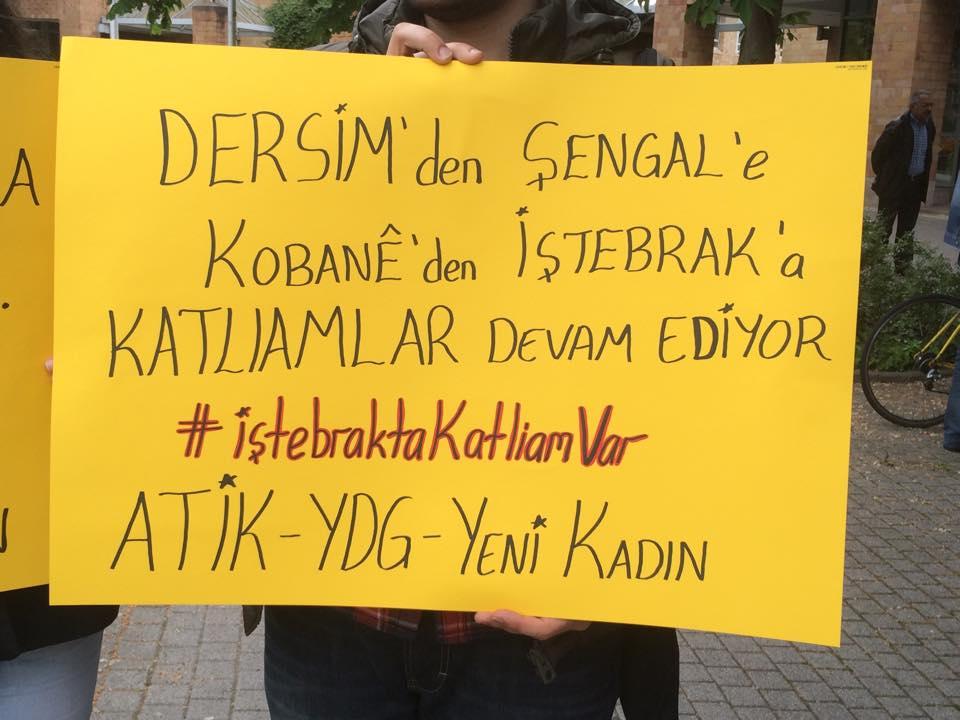 DERSİM'den ŞENGAL'e
KOBANÊ'den İŞTEBRAK'a
KATLİAMLAR DEVAM EDİYOR
#iştebraktaKatliamVar
ATİK-YDG-YENİ KADIN
A